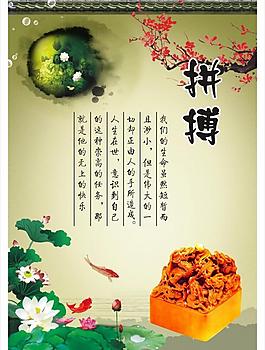 拼搏
我们的生命虽然短暂而
且渺小，但是伟大的一
切却正由人的手所造成。
人生在世，意识到自己
的这种崇高的任务，那
就是他的无上的快乐